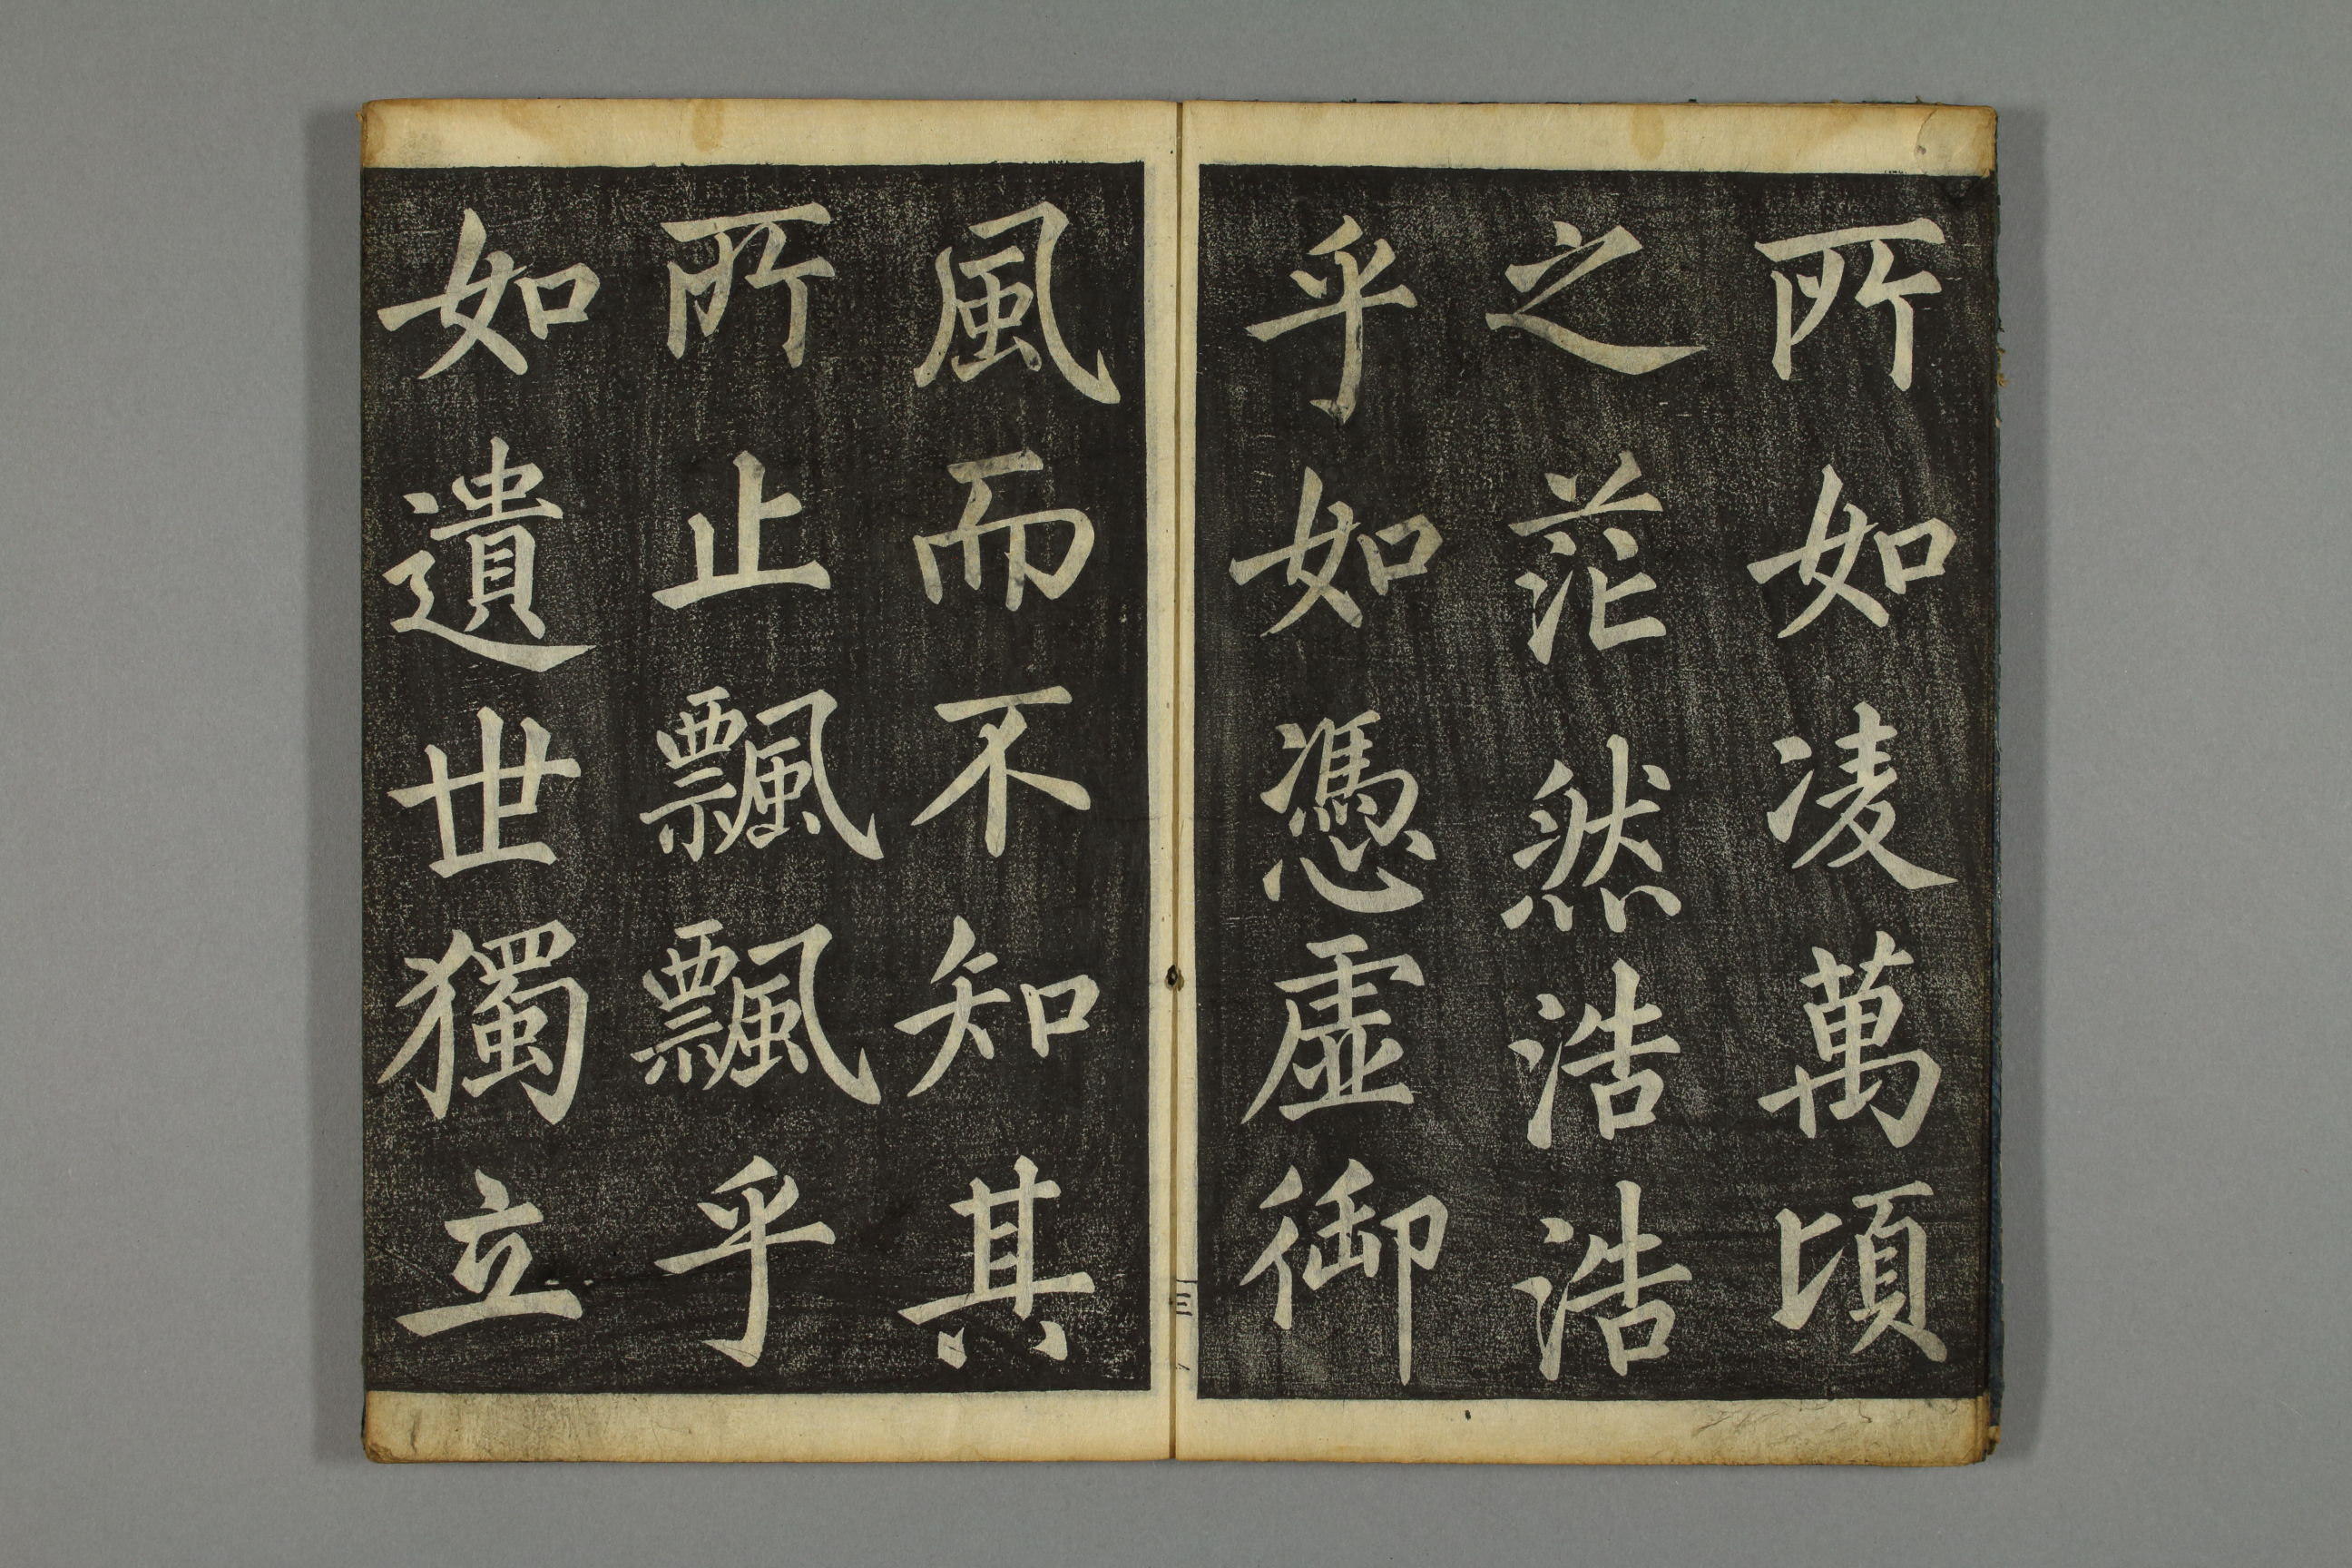 所如凌萬頃
之茫然浩浩
乎如憑虛御
風而不知其
所止飄飄乎
如遺世獨立